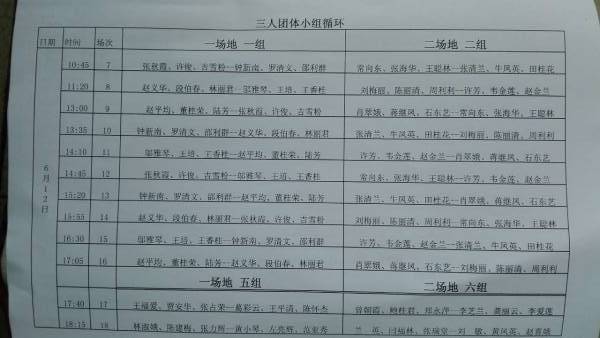 三人团体小组循环
日期 时间 场次 一场地 一组 二场地 二组
6月12日
10:45 7 张秋霞、许俊、古雪粉—钟新南、罗清文、邵利群 常向东、张海华、王聪林—张清兰、牛凤英、田桂花
11:20 8 赵义华、段伯春、林丽君—邬雅琴、王培、王香桂 刘梅丽、陈丽清、周利利—许芳、韦金莲、赵金兰
13:00 9 赵平均、董桂荣、陆芳—张秋霞、许俊、古雪粉 肖翠娥、蒋继凤、石东艺—常向东、张海华、王聪林
13:35 10 钟新南、罗清文、邵利群—赵义华、段伯春、林丽君 张清兰、牛凤英、田桂花—刘梅丽、陈丽清、周利利
14:10 11 邬雅琴、王培、王香桂—赵平均、董桂荣、陆芳 许芳、韦金莲、赵金兰—肖翠娥、蒋继凤、石东艺
14:45 12 张秋霞、许俊、古雪粉—邬雅琴、王培、王香桂 常向东、张海华、王聪林—许芳、韦金莲、赵金兰
15:20 13 钟新南、罗清文、邵利群—赵平均、董桂荣、陆芳 张清兰、牛凤英、田桂花—肖翠娥、蒋继凤、石东艺
15:55 14 赵义华、段伯春、林丽君—张秋霞、许俊、古雪粉 刘梅丽、陈丽清、周利利—常向东、张海华、王聪林
16:30 15 邬雅琴、王培、王香桂—钟新南、罗清文、邵利群 许芳、韦金莲、赵金兰—张清兰、牛凤英、田桂花
17:05 16 赵平均、董桂荣、陆芳—赵义华、段伯春、林丽君 肖翠娥、蒋继凤、石东艺—刘梅丽、陈丽清、周利利
一场地 五组 二场地 六组
17:40 17 王福爱、贾安华、张占荣—葛彩云、王平清、陈怀杰 曾朝霞、鲍桂君、郑永萍—李芝兰、龚丽云、李爱莲
18:15 18 林淑娥、陈建梅、张力辉—黄小琴、左亮辉、范亚秀 兰 英、闫福林、张瑞堂—刘 敏、黄凤英、赵喜娥